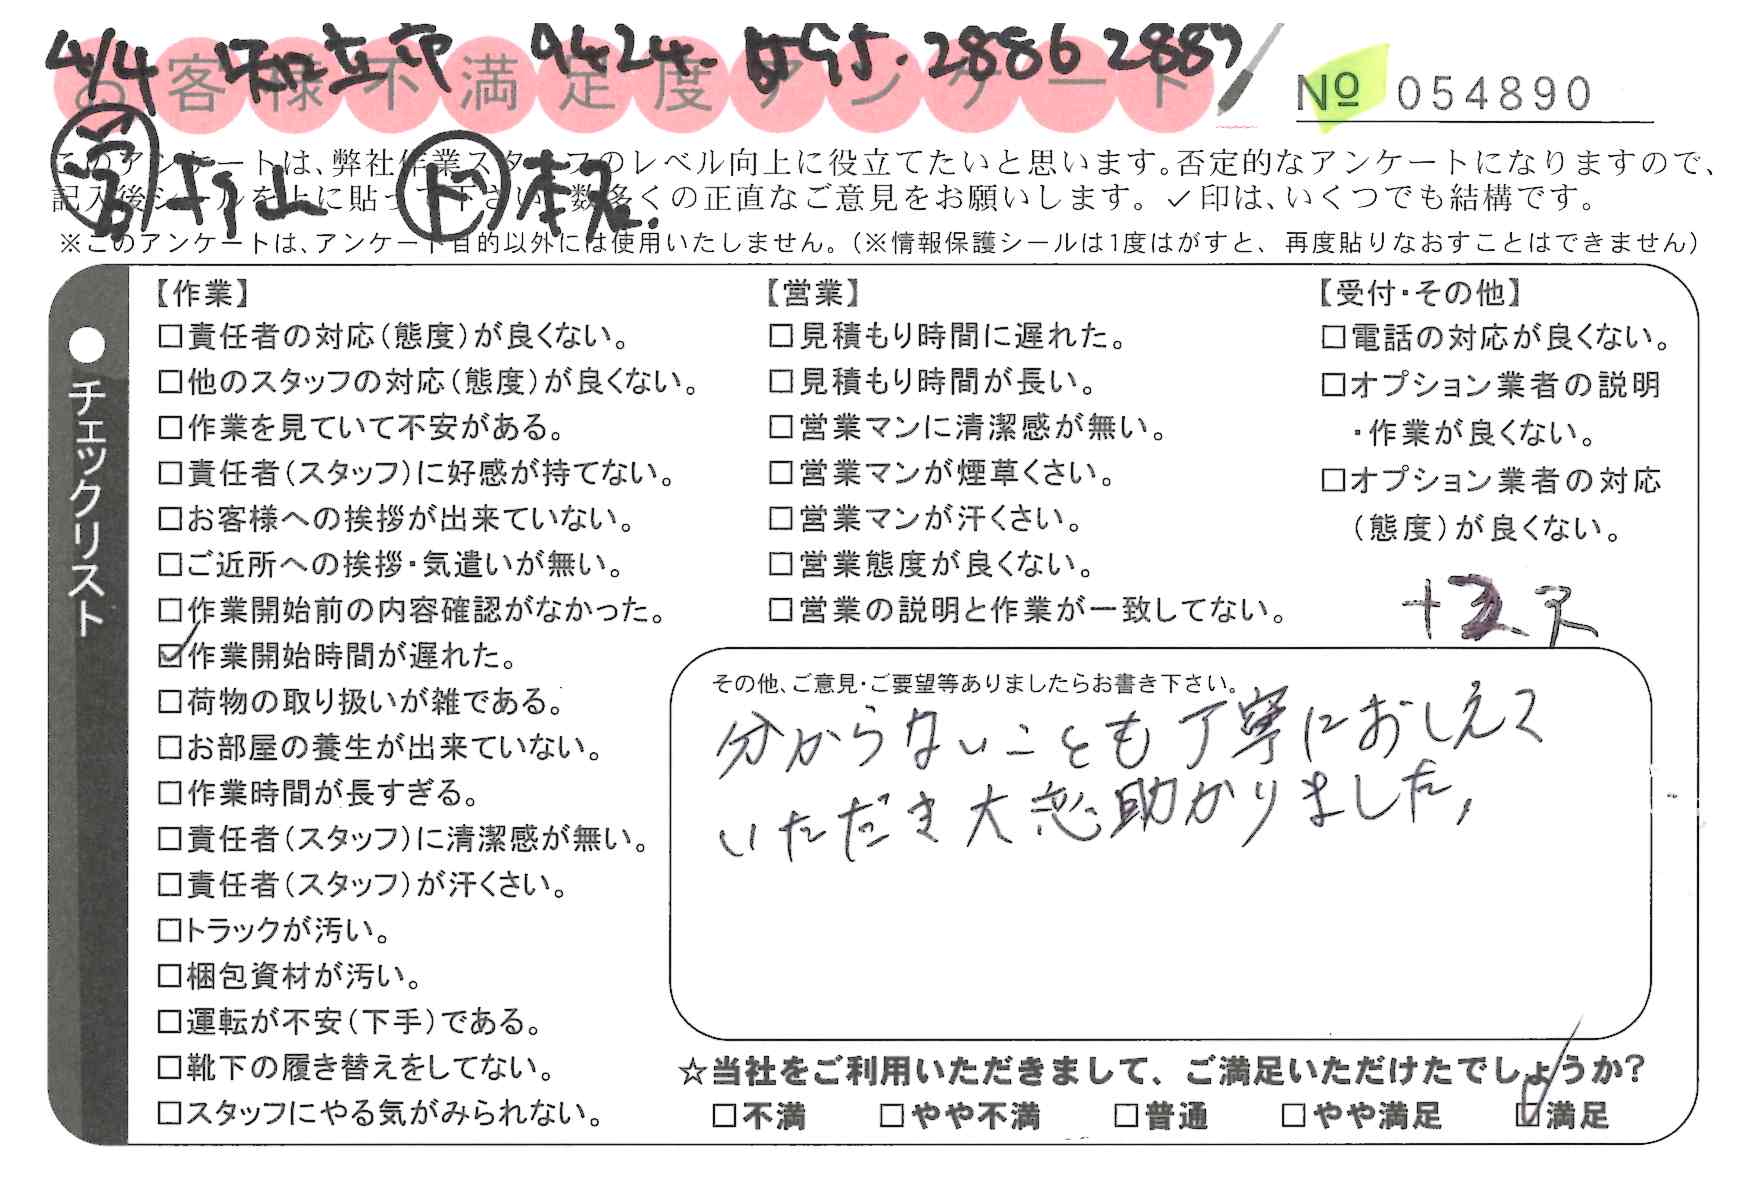 4/4 知立市 9424. 8595. 2886 2887
お客様不満足度アンケート
№ 054890
このアンケートは、弊社作業スタッフのレベル向上に役立てたいと思います。否定的なアンケートになりますので、
記入後シールを上に貼って下さい。数多くの正直なご意見をお願いします。✓印は、いくつでも結構です。
※このアンケートは、アンケート目的以外には使用いたしません。(※情報保護シールは1度はがすと、再度貼りなおすことはできません)
●チェックリスト
【作業】
□責任者の対応(態度)が良くない。
□他のスタッフの対応(態度)が良くない。
□作業を見ていて不安がある。
□責任者(スタッフ)に好感が持てない。
□お客様への挨拶が出来ていない。
□ご近所への挨拶・気遣いが無い。
□作業開始前の内容確認がなかった。
☑作業開始時間が遅れた。
□荷物の取り扱いが雑である。
□お部屋の養生が出来ていない。
□作業時間が長すぎる。
□責任者(スタッフ)に清潔感が無い。
□責任者(スタッフ)が汗くさい。
□トラックが汚い。
□梱包資材が汚い。
□運転が不安(下手)である。
□靴下の履き替えをしてない。
□スタッフにやる気がみられない。
【営業】
□見積もり時間に遅れた。
□見積もり時間が長い。
□営業マンに清潔感が無い。
□営業マンが煙草くさい。
□営業マンが汗くさい。
□営業態度が良くない。
□営業の説明と作業が一致してない。
【受付・その他】
□電話の対応が良くない。
□オプション業者の説明
・作業が良くない。
□オプション業者の対応
(態度)が良くない。
その他、ご意見・ご要望等ありましたらお書き下さい。
分からないことも丁寧におしえて
いただき大変助かりました。
☆当社をご利用いただきまして、ご満足いただけたでしょうか?
□不満 □やや不満 □普通 □やや満足 ☑満足